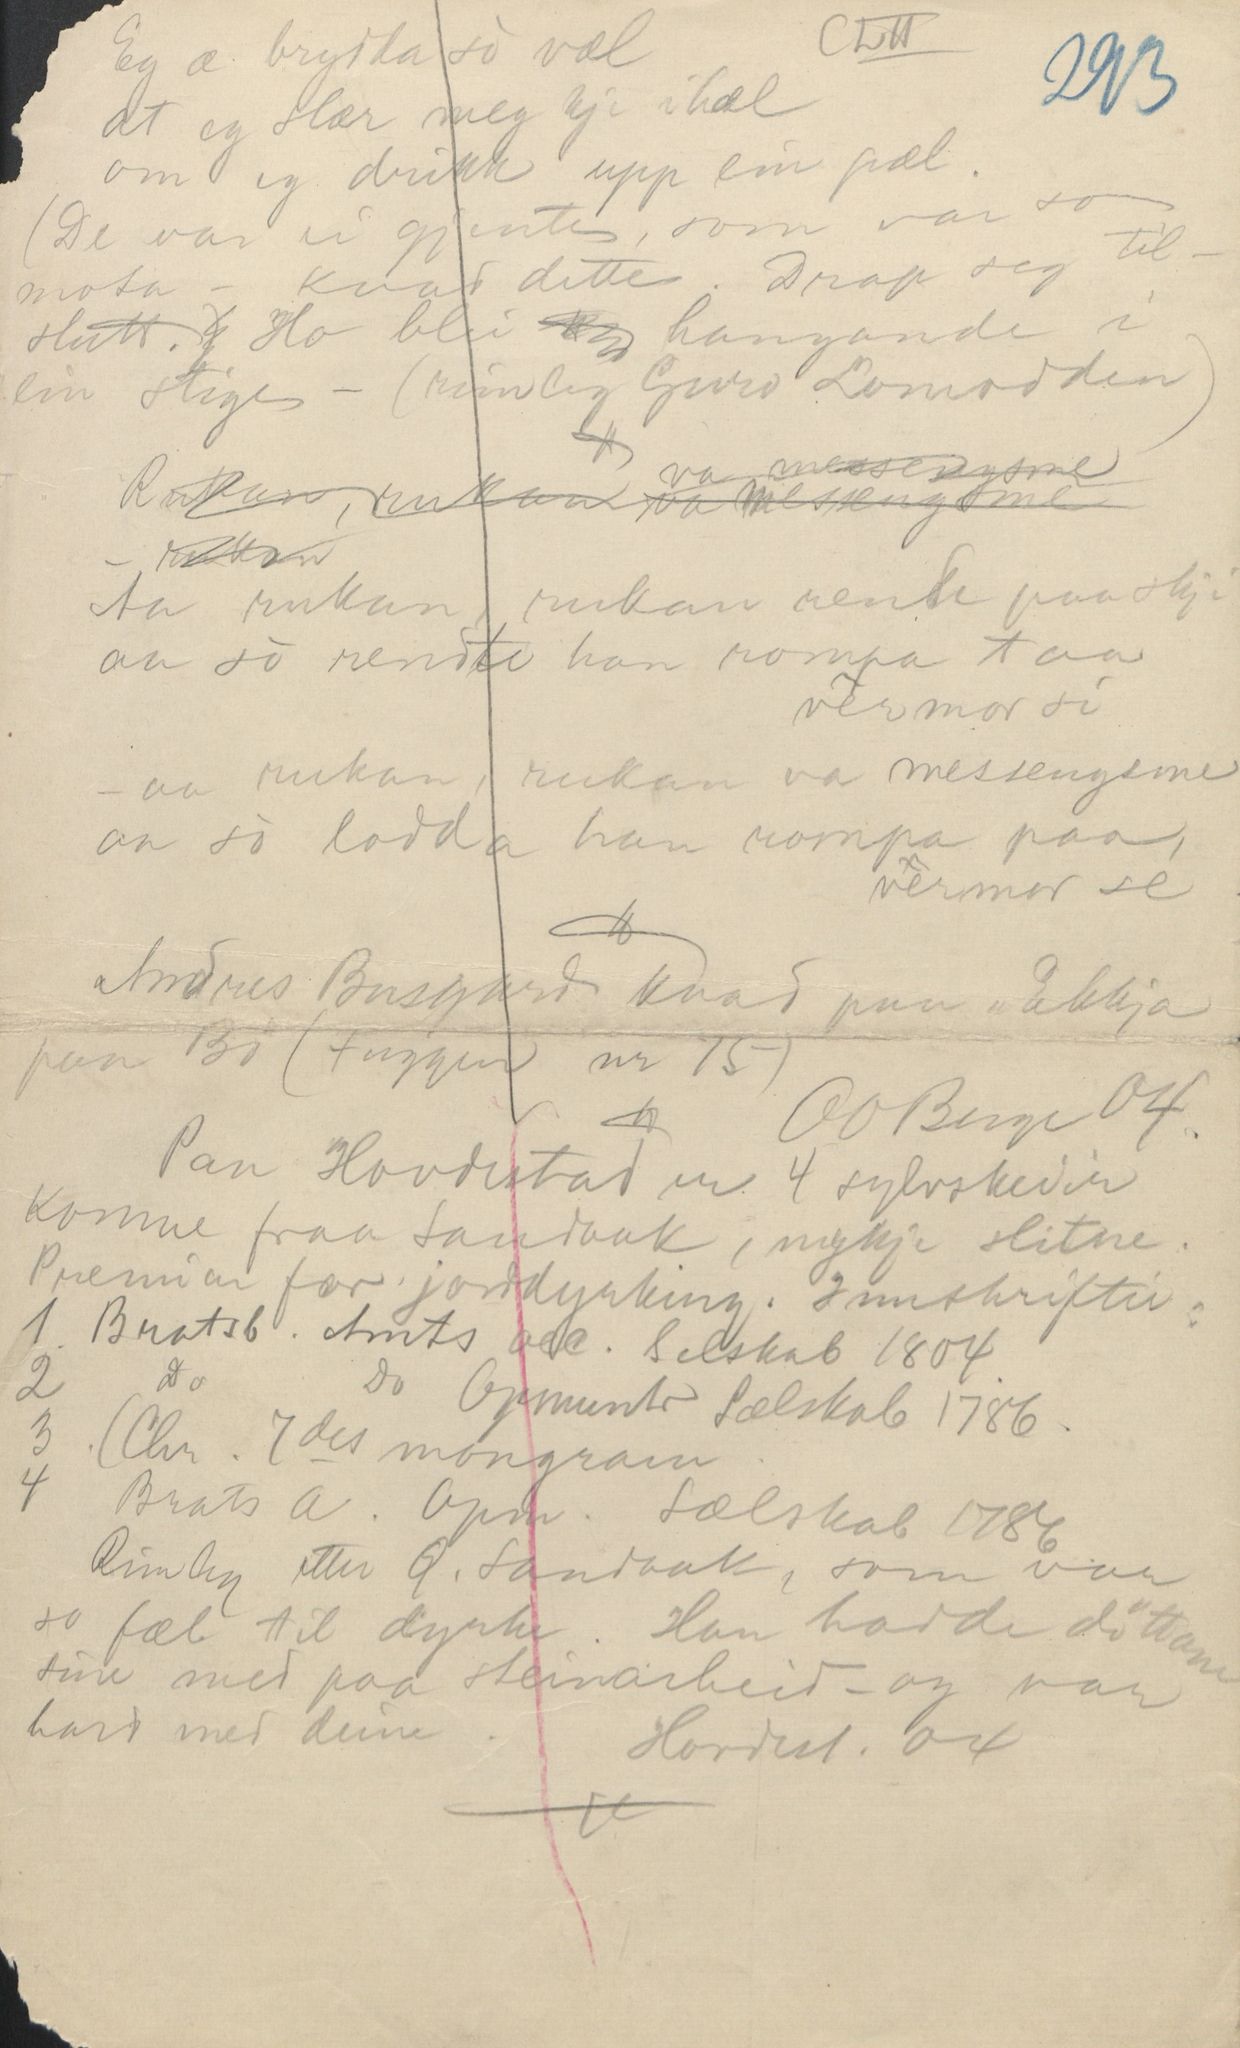 293
Eg æ brydda sò væl
at eg slær meg kje ihæl
om eg drikk upp ein pæl.
(De var ei gjente, som var so
mota - kvad dette. Drap seg til-
slutt. Ho blei hangande i
ein stige - (rimleg Guro Lomodden)
Rukan, rukan va messengsme
va messengsme
- rukan
Aa rukan, rukan rende paa skji
aa sò rendte han rompa taa
vèrmor si
- aa rukan, rukan va messengsme
aa sò lodda han rompa paa,
vèrmor se
Andres Busgard kvad paa "Ekkja
paa Bö (Fuggen nr 75)
OO Berge 04.
Paa Hovdestad er 4 sylvskeier
komne fraa Sandaak, mykje slitne.
Premiar fær jorddyrking. Innskrifter:
1. Bratsb. Amts oec. Selskab 1804
2 Do Do Opmuntr Sælskab 1786.
3. (Chr. 7des mongram
4 Brats A. Opm. Sælskab 1786
Rimleg etter G. Sandaak, som var
so fæl til dyrke. Han hadde döttane
sine med paa steinarbeid - og var
hard med deim.
Hovdest. 04